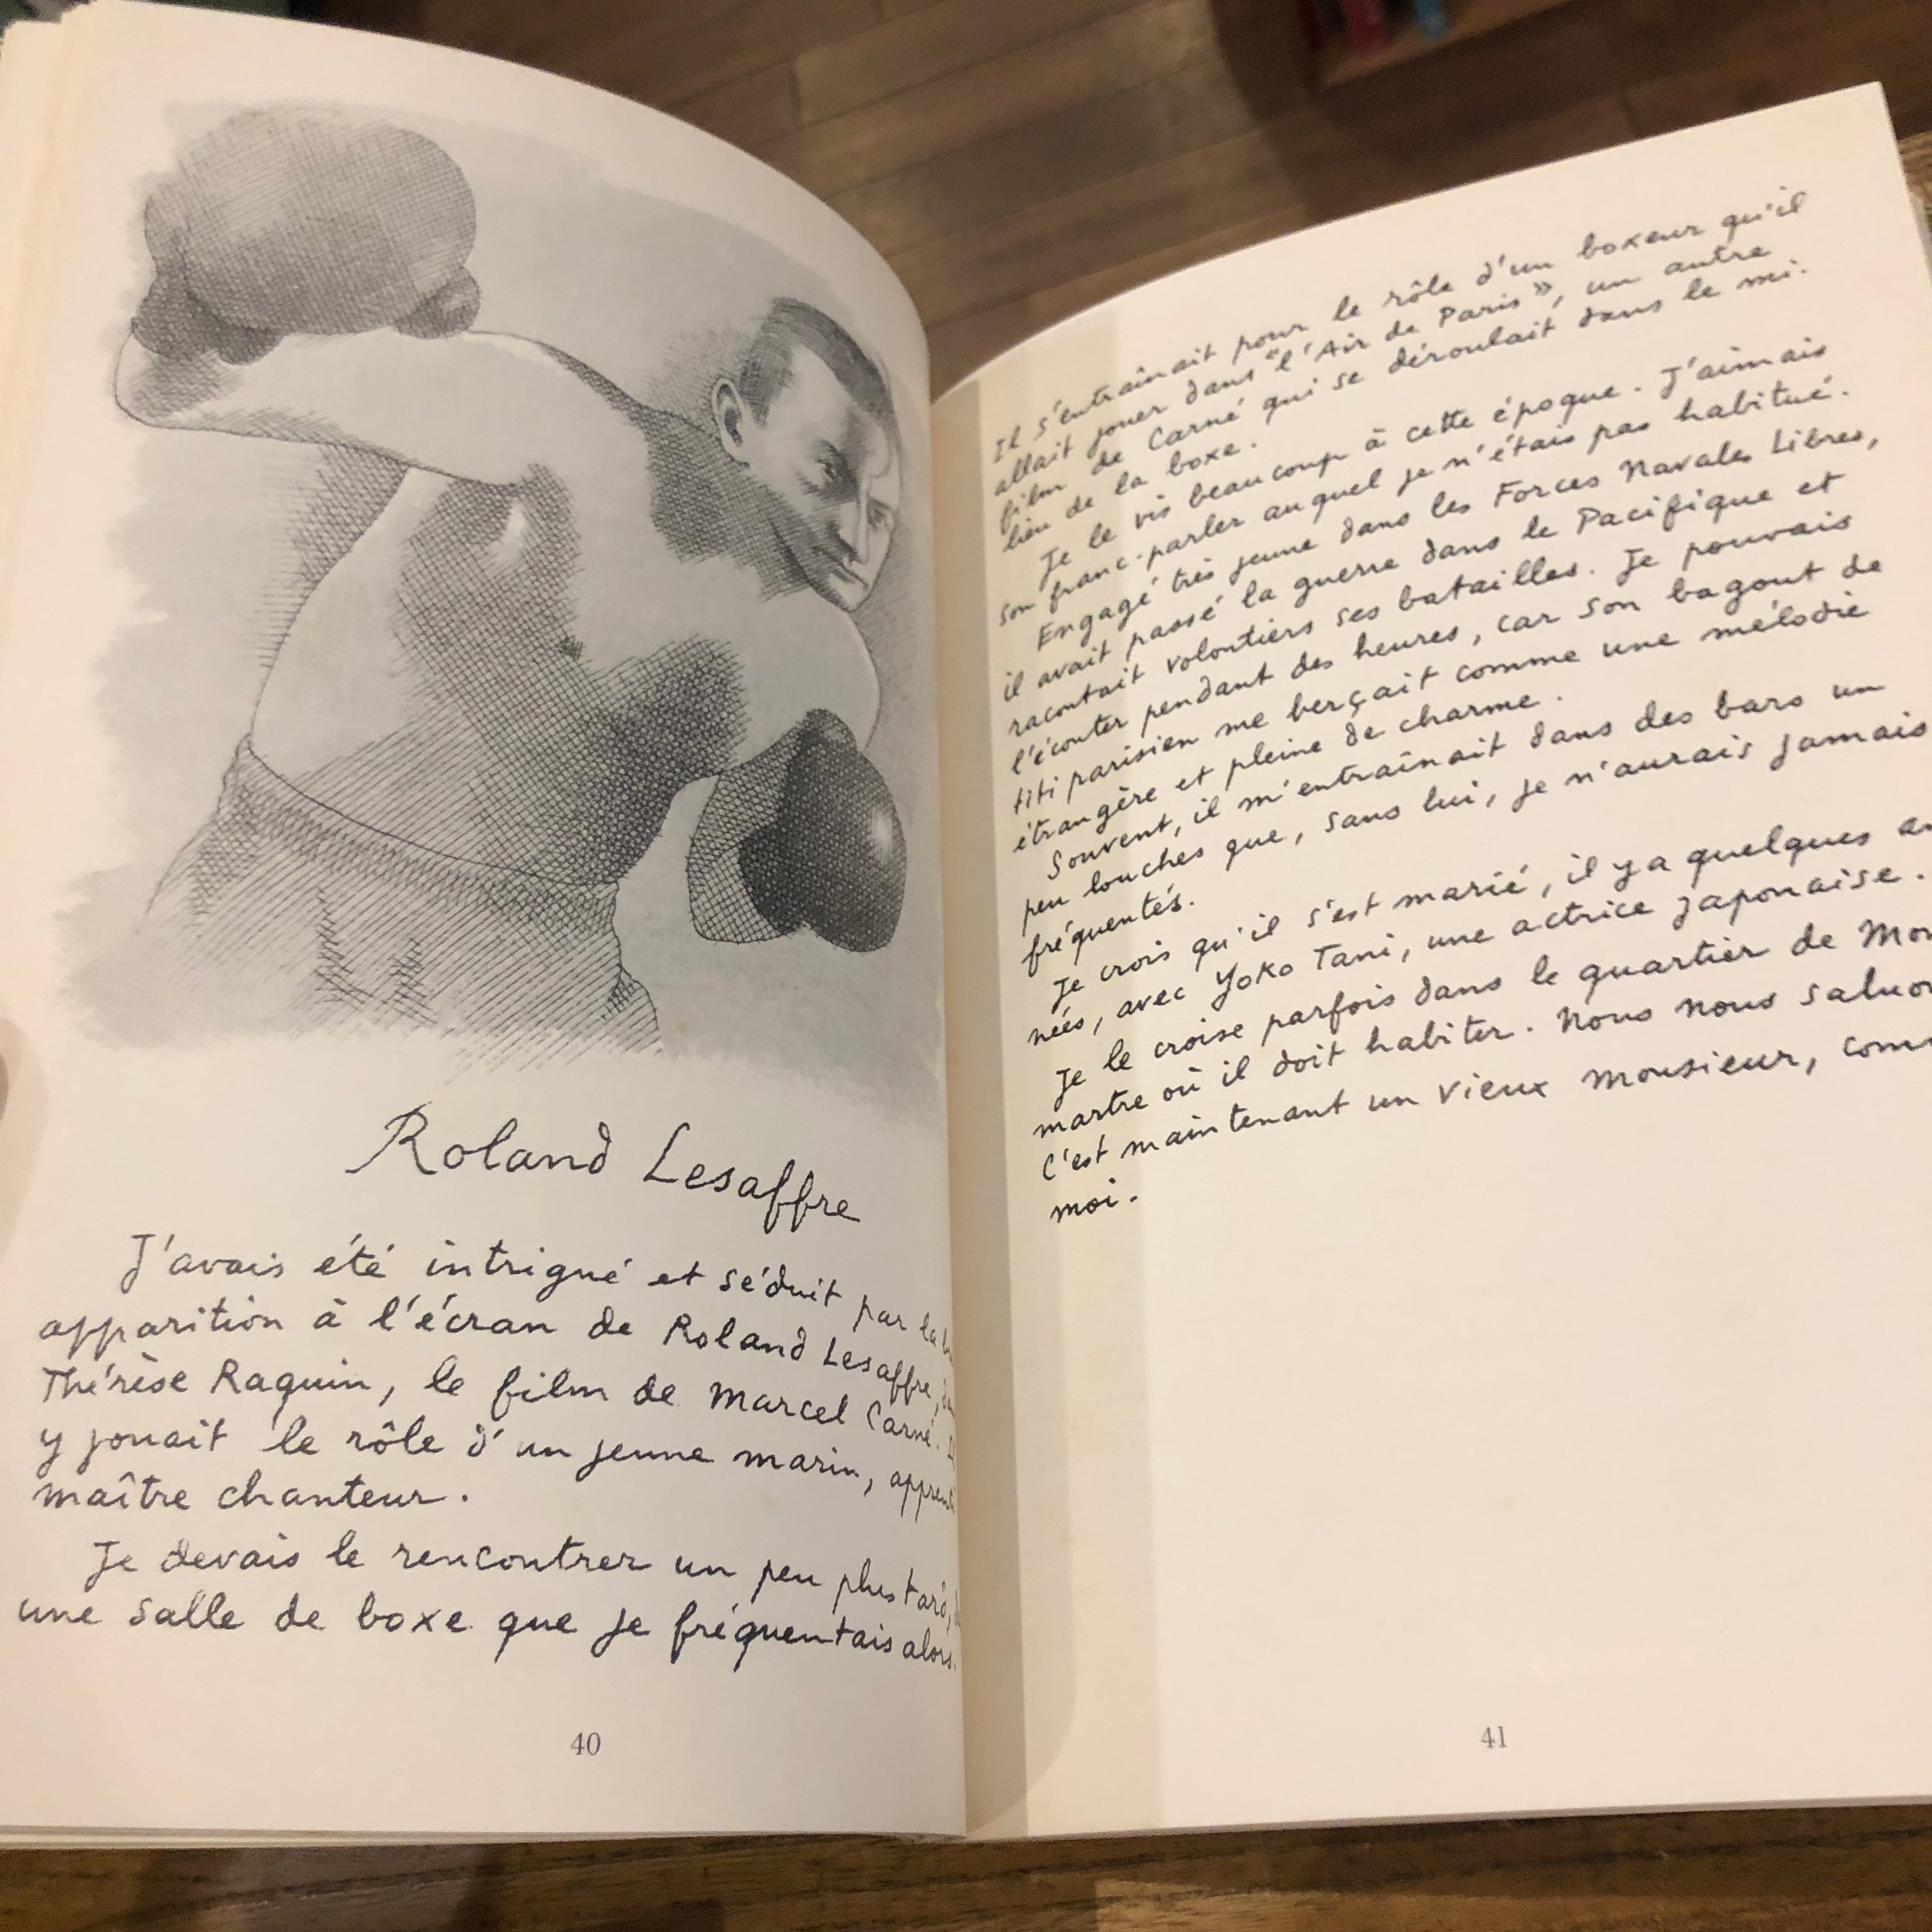 Roland Lesaffre
J'avais été intrigué et séduit par la
apparition à l'écran de Roland Lesaffre,
Thérèse Raquin, le film de Marcel Carné. Il
y jouait le rôle d'un jeune marin, apprenti
maître chanteur.
Je devais le rencontrer un peu plus tard,
une salle de boxe que je fréquentais alors.
40
Il s'entraînait pour le rôle d'un boxeur qu'il
allait jouer dans "l'Air de Paris", un autre
film de Carné qui se déroulait dans le mi-
lieu de la boxe.
Je le vis beaucoup à cette époque. J'aimais
son franc-parler auquel je n'étais pas habitué.
Engagé très jeune dans les Forces Navales Libres,
il avait passé la guerre dans le Pacifique et
racontait volontiers ses batailles. Je pouvais
l'écouter pendant des heures, car son bagout de
titi parisien me berçait comme une mélodie
étrangère et pleine de charme.
Souvent, il m'entraînait dans des bars un
peu louches que, sans lui, je n'aurais jamais
fréquentés.
Je crois qu'il s'est marié, il y a quelques an
nées, avec Yoko Tani, une actrice japonaise.
Je le croise parfois dans le quartier de Mon
martre où il doit habiter. Nous nous saluon
C'est maintenant un vieux monsieur, comm
moi.
41